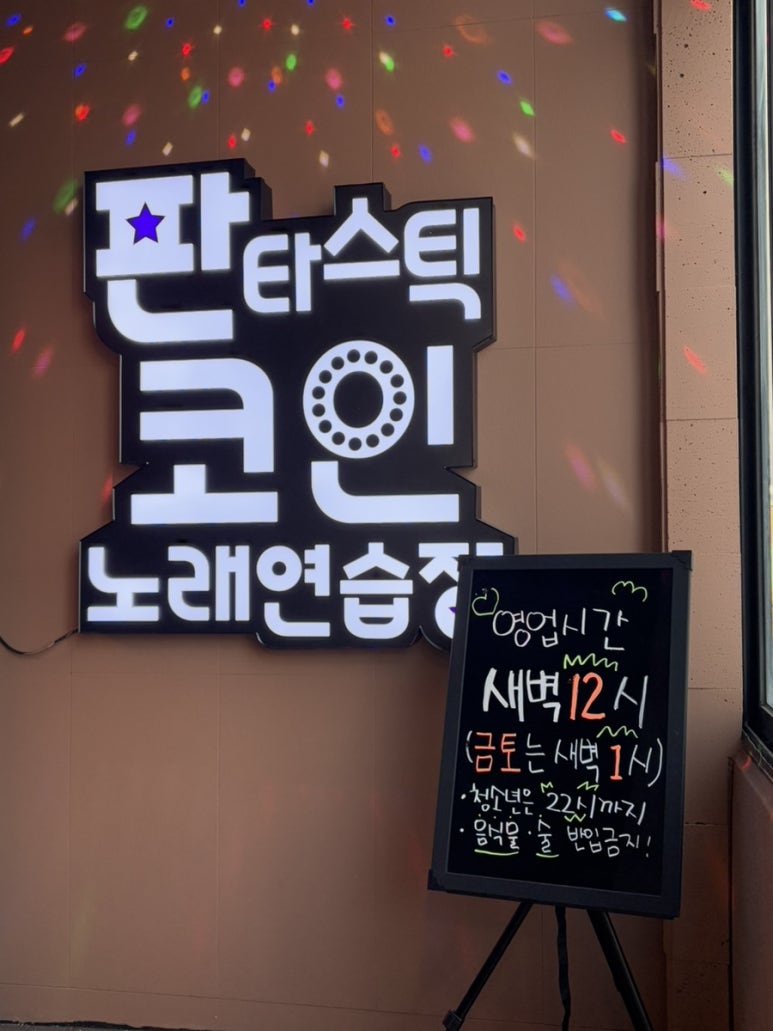 판타스틱
코인
노래연습장
영업시간
새벽 12시
(금토는 새벽 1시)
·청소년은 22시까지
·음식물·술 반입금지!